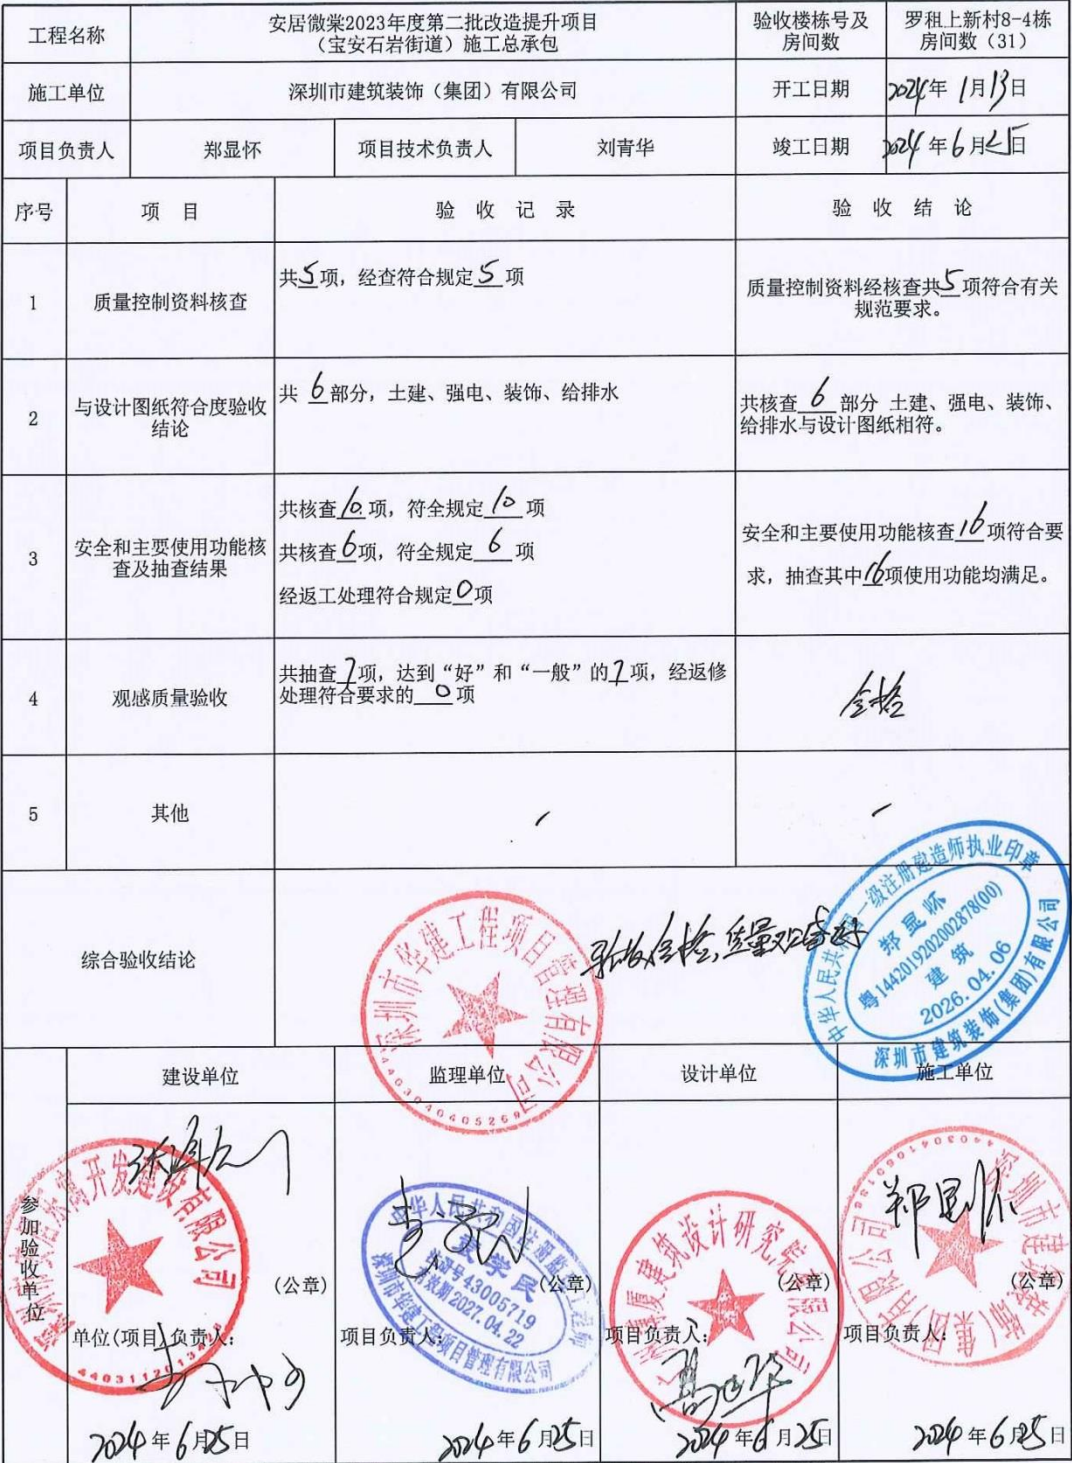 工程名称
安居微棠2023年度第二批改造提升项目
（宝安石岩街道）施工总承包
验收楼栋号及
房间数
罗租上新村8-4栋
房间数（31）
施工单位
深圳市建筑装饰（集团）有限公司
开工日期
2024年 1月13日
项目负责人
郑显怀
项目技术负责人
刘青华
竣工日期
2024年6月25日
序号
项 目
验 收 记 录
验 收 结 论
1
质量控制资料核查
共5项，经查符合规定5项
质量控制资料经核查共5项符合有关
规范要求。
2
与设计图纸符合度验收
结论
共 6部分，土建、强电、装饰、给排水
共核查 6 部分 土建、强电、装饰、
给排水与设计图纸相符。
3
安全和主要使用功能核
查及抽查结果
共核查10项，符全规定10项
共核查6项，符全规定 6 项
经返工处理符合规定0项
安全和主要使用功能核查16项符合要
求，抽查其中16项使用功能均满足。
4
观感质量验收
共抽查7项，达到“好”和“一般”的7项，经返修
处理符合要求的 0 项
合格
5
其他
综合验收结论
验收合格，质量观感好
中华人民共和国一级注册建造师执业印章
郑显怀
粤1442019202002878(00)
建筑
2026.04.06
深圳市建筑装饰(集团)有限公司
深圳市华建工程项目管理有限公司
参加验收单位
建设单位
监理单位
设计单位
施工单位
(公章)
(公章)
(公章)
(公章)
中华人民共和国注册监理工程师
注册号43005719
有效期2027.04.22
深圳市华建工程项目管理有限公司
郑显怀
单位(项目)负责人：
项目负责人：
项目负责人：
项目负责人：
2024年6月25日
2024年6月25日
2024年6月25日
2024年6月25日